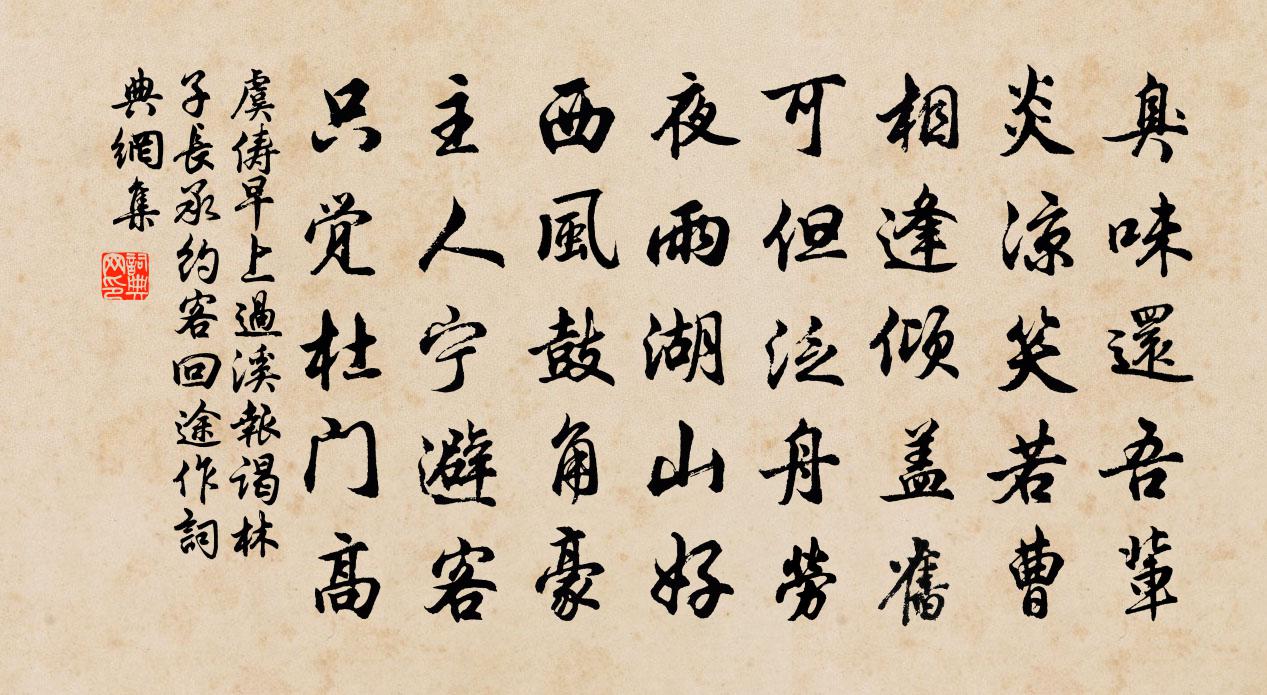 臭味還吾輩
炎涼笑若曹
相逢倾盖舊
可但泛舟勞
夜雨湖山好
西風鼓角豪
主人宁避客
只觉杜门高
虞儔早上過溪報謁林
子長承約客回途作詞
典網集
詞典网印